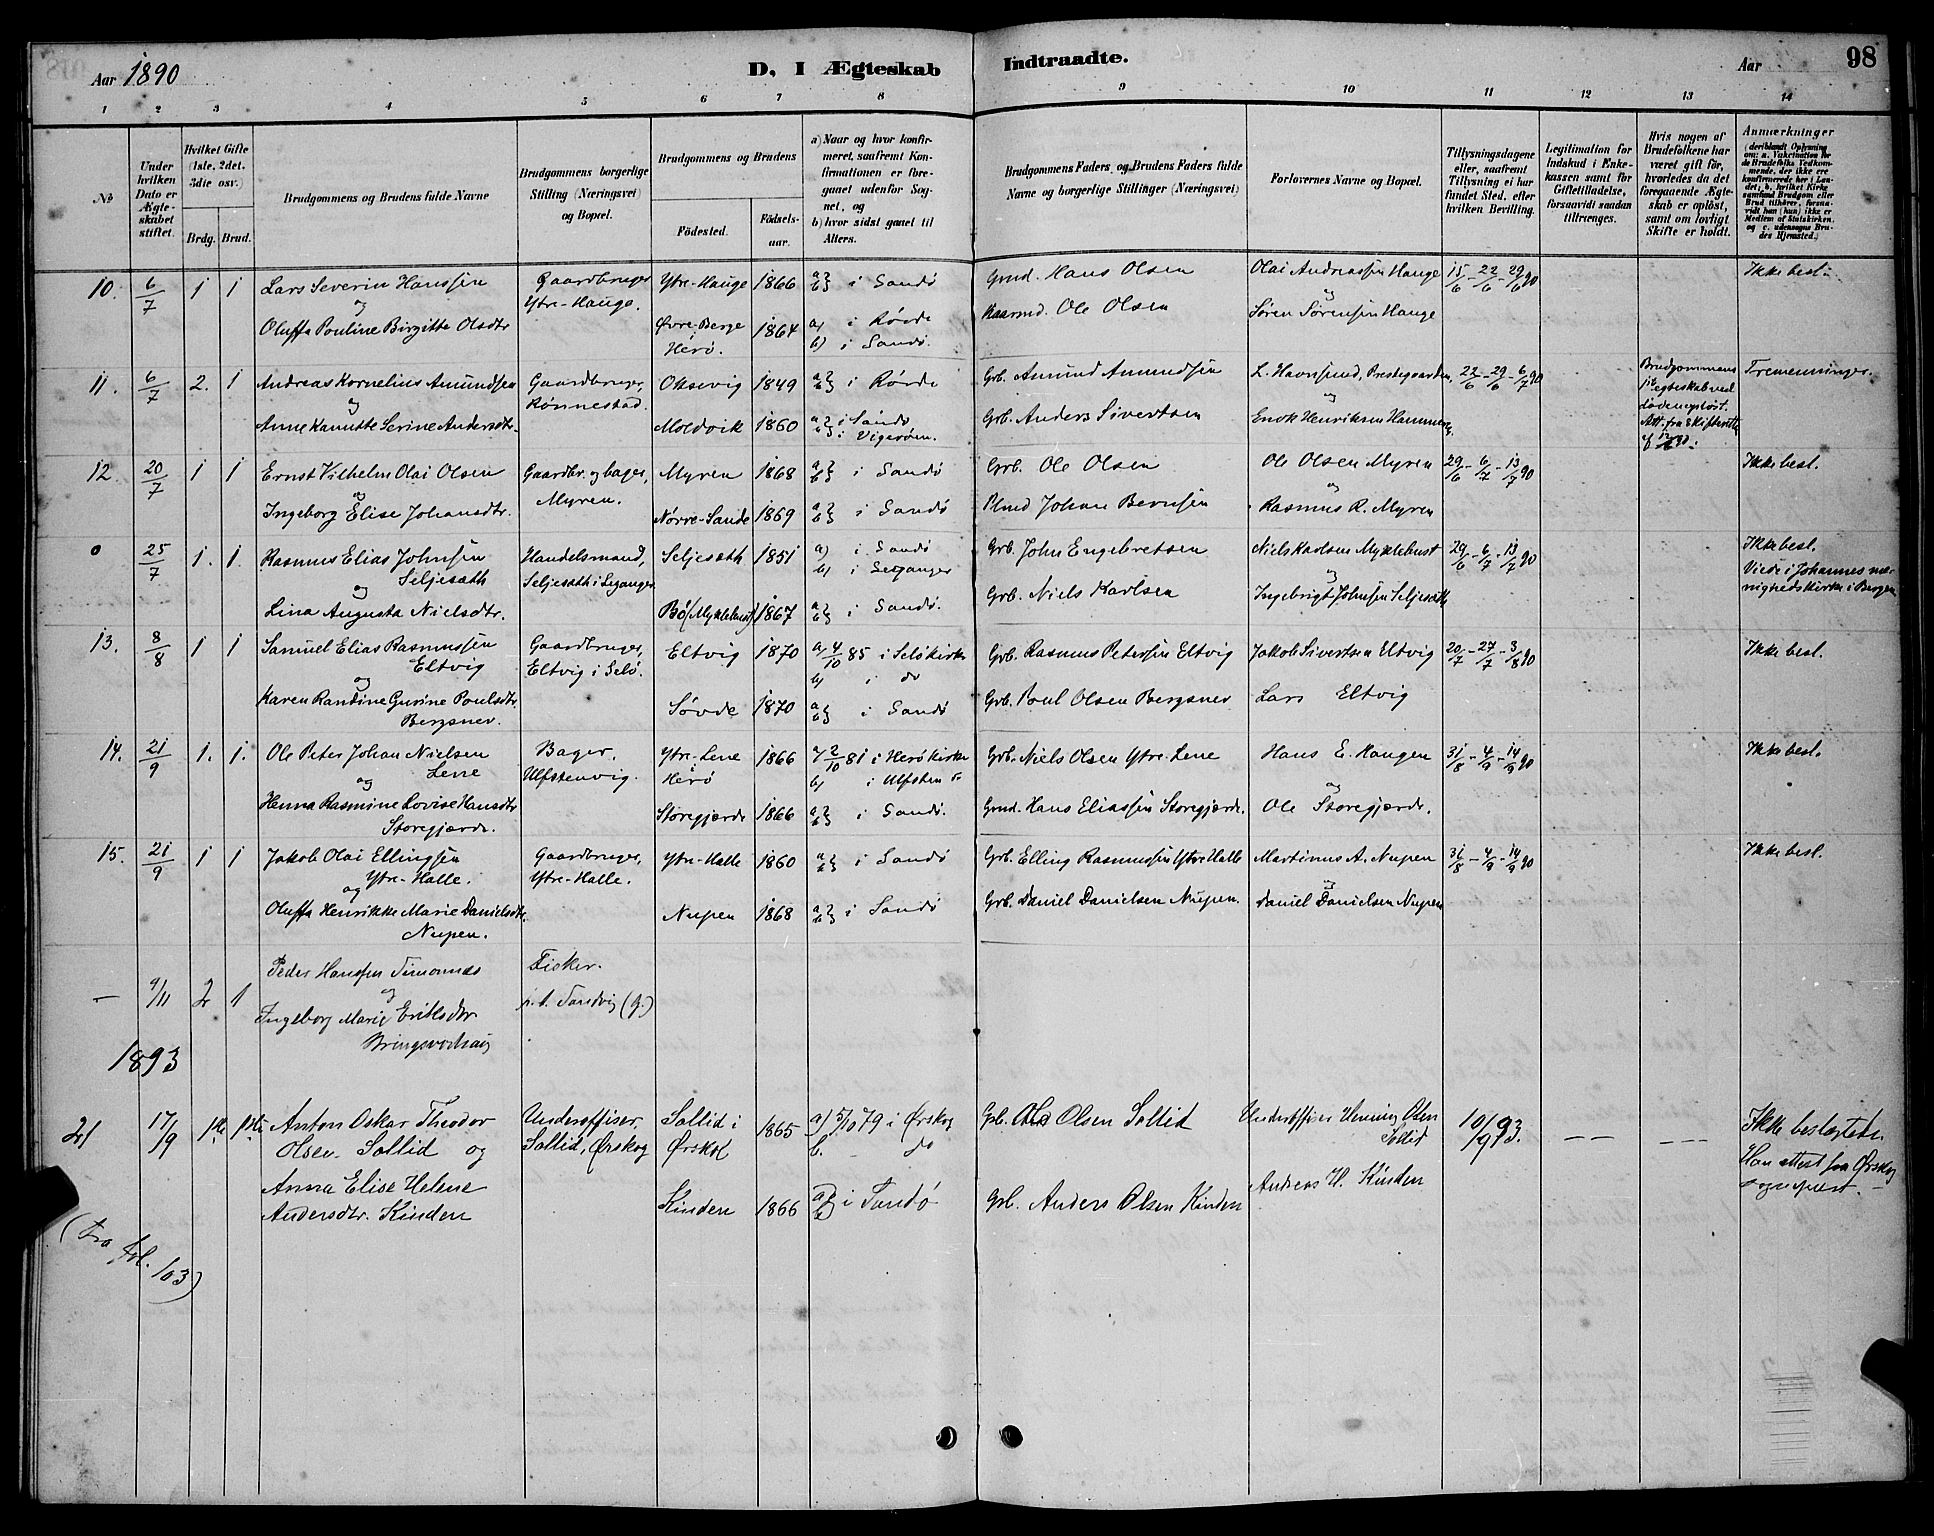 Aar 1890
D, I Ægteskab Indtraadte.
Aar
98
1 2 3 4 5 6 7 8 9 10 11 12 13 14
№
Under hvilken Dato er Ægteskabet stiftet.
Hvilket Gifte (1ste, 2det, 3die osv.)
Brdg. Brud.
Brudgommens og Brudens fulde Navne
Brudgommens borgerlige Stilling (Næringsvei) og Bopæl.
Brudgommens og Brudens
Fødested.
Fødselsaar.
a) Naar og hvor konfirmeret, saafremt Konfirmationen er foregaaet udenfor Sognet, og
b) hvor sidst gaaet til Alters.
Brudgommens Faders, og Brudens Faders fulde Navne og borgerlige Stillinger (Næringsvei)
Forlovernes Navne og Bopæl.
Tillysningsdagene eller, saafremt Tillysning ei har fundet Sted, efter hvilken Bevilling.
Legitimation for Indskud i Enkekassen samt for Giftetilladelse, forsaavidt saadan tiltrænges.
Hvis nogen af Brudefolkene har været gift før, hvorledes da det foregaaende Ægteskab er opløst, samt om lovligt Skifte er holdt.
Anmærkninger (deriblandt Oplysning om: a. Vakcination for de Brudefolks Vedkommende, der ikke ere konfirmerede her i Landet; b. hvilket Kirkesamfund Brudgom eller Brud tilhører, forsaavidt han (hun) ikke er Medlem af Statskirken, og c. udensogns Brudes Hjemsted.)
10. 6/7 1 1 Lars Severin Hanssen Gaardbruger Ytre-Hauge 1866 a b} i Sandö Grmd. Hans Olsen Olai Andreassen Hauge 15/6 - 22/6 - 29/6 90 Ikke besl.
og Ytre-Hauge. og
Oluffa Pouline Birgitte Olsdtr Øvre-Berge Herö. 1864 a) i Rövde b) i Sandö. Kaarmd. Ole Olsen Sören Sörensen Hauge
11. 6/7 2. 1 Andreas Kornelius Amundsen Gaardbruger, Oksevig 1849 a b} i Rövde Grb. Amund Amundsen L. Havnsund, Prestegaarden, 22/6 - 29/6 - 6/7 90 Brudgommens Tremenninger.
og Rönnestad. og
Anne Kanutte Serine Andersdtr. Moldvik 1860 a i Sandö b i Vigeröen. Grb. Anders Sivertsen Enok Henriksen Hammer
12. 20/7 1 1 Ernst Vilhelm Olai Olsen Gaardbr. og bager, Myren 1868 a b} i Sandö Grb. Ole Olsen Ole Olsen Myren 29/6 - 6/7 - 13/7 90 Ikke besl.
og Myren. og
Ingeborg Elise Johansdtr. Nörre-Sande 1869 a b} i Sandö Johan Berntsen Rasmus R. Myren
0 25/7 1. 1. Rasmus Elias Johnsen Handelsmand, Seljesæth 1851 a) i Sandö Grb. John Engebretsen Niels Karlsen Myklebust 29/6 - 6/7 - 13/7 90 Ikke besl.
Seljesæth Seljesæth i Seganger b) i Seganger Viede i Johannes me-
og og nighedskirke i Bergen
Lina Augusta Nielsdtr. Bö (Myklebust) 1867 a b} i Sandö. Grb. Niels Karlsen Ingebrigt Johnsen Seljesæth
13. 8/8 1 1 Samuel Elias Rasmussen Gaardbruger, Eltvig 1870 a) 4/10 85 i Selökirke Grb. Rasmus Petersen Eltvig Jakob Sivertsen Eltvig 20/7 - 27/7 - 3/8 90 Ikke besl.
Eltvig Eltvig i Selö. b) i do
og
Karen Rantine Gurine Poulsdtr. Sövde 1870 a b} i Sandö Grb. Poul Olsen Bergsnev Lars Eltvig
Bergsnev.
14. 21/9 1. 1. Ole Peter Johan Nielsen Bager, Ytre-Lene 1866 a) 2/10 81 i Herökirke Grb. Niels Olsen Ytre Lene Hans E. Haugen 31/8 - 4/9 - 14/9 90 Ikke besl.
Lene Ulfstenvig. Herö b) i Ulfsten
og og
Henna Rasmine Lovise Hansdtr Storegjærde 1866 a b} i Sandö. Grmd. Hans Eliassen Storegjærde. Ole Storegjærde.
Storegjærde.
15. 21/9 1 1 Jakob Olai Ellingsen Gaardbruger, Ytre-Halle 1860 a b} i Sandö Grb. Elling Rasmussen Ytre Halle Martinus A. Nupen 31/8 - 4/9 - 14/9 90 Ikke besl.
Ytre-Halle. Ytre-Halle.
og og
Oluffa Henrikke Marie Danielsdtr. Nupen 1868 a b} i Sandö Grb. Daniel Danielsen Nupen. Daniel Danielsen Nupen
Nupen.
— 9/11 2 1 Peder Hanssen Timannes Fisker.
og p.t. Sandvig (g.)
Ingeborg Marie Eriksdtr
1893
21 17/9 1ste 1ste Anton Oskar Theodor Underoffiser, Sollid i 1865 a) 5/10 79 i Ørskog Grb. Ole Olsen Sollid Underoffiser Henning Olsen 10/9 93. — — — — — Ikke beslægtede.
Olsen Sollid og Sollid, Ørskog Ørskog b. do Sollid Han attest fra Ørskog
Anna Elise Helene Kinden 1866 a b} i Sandö Grb. Anders Olsen Kinden Andreas H. Kinden sognepræst.
Andersdtr. Kinden
(Fra fol. 103)